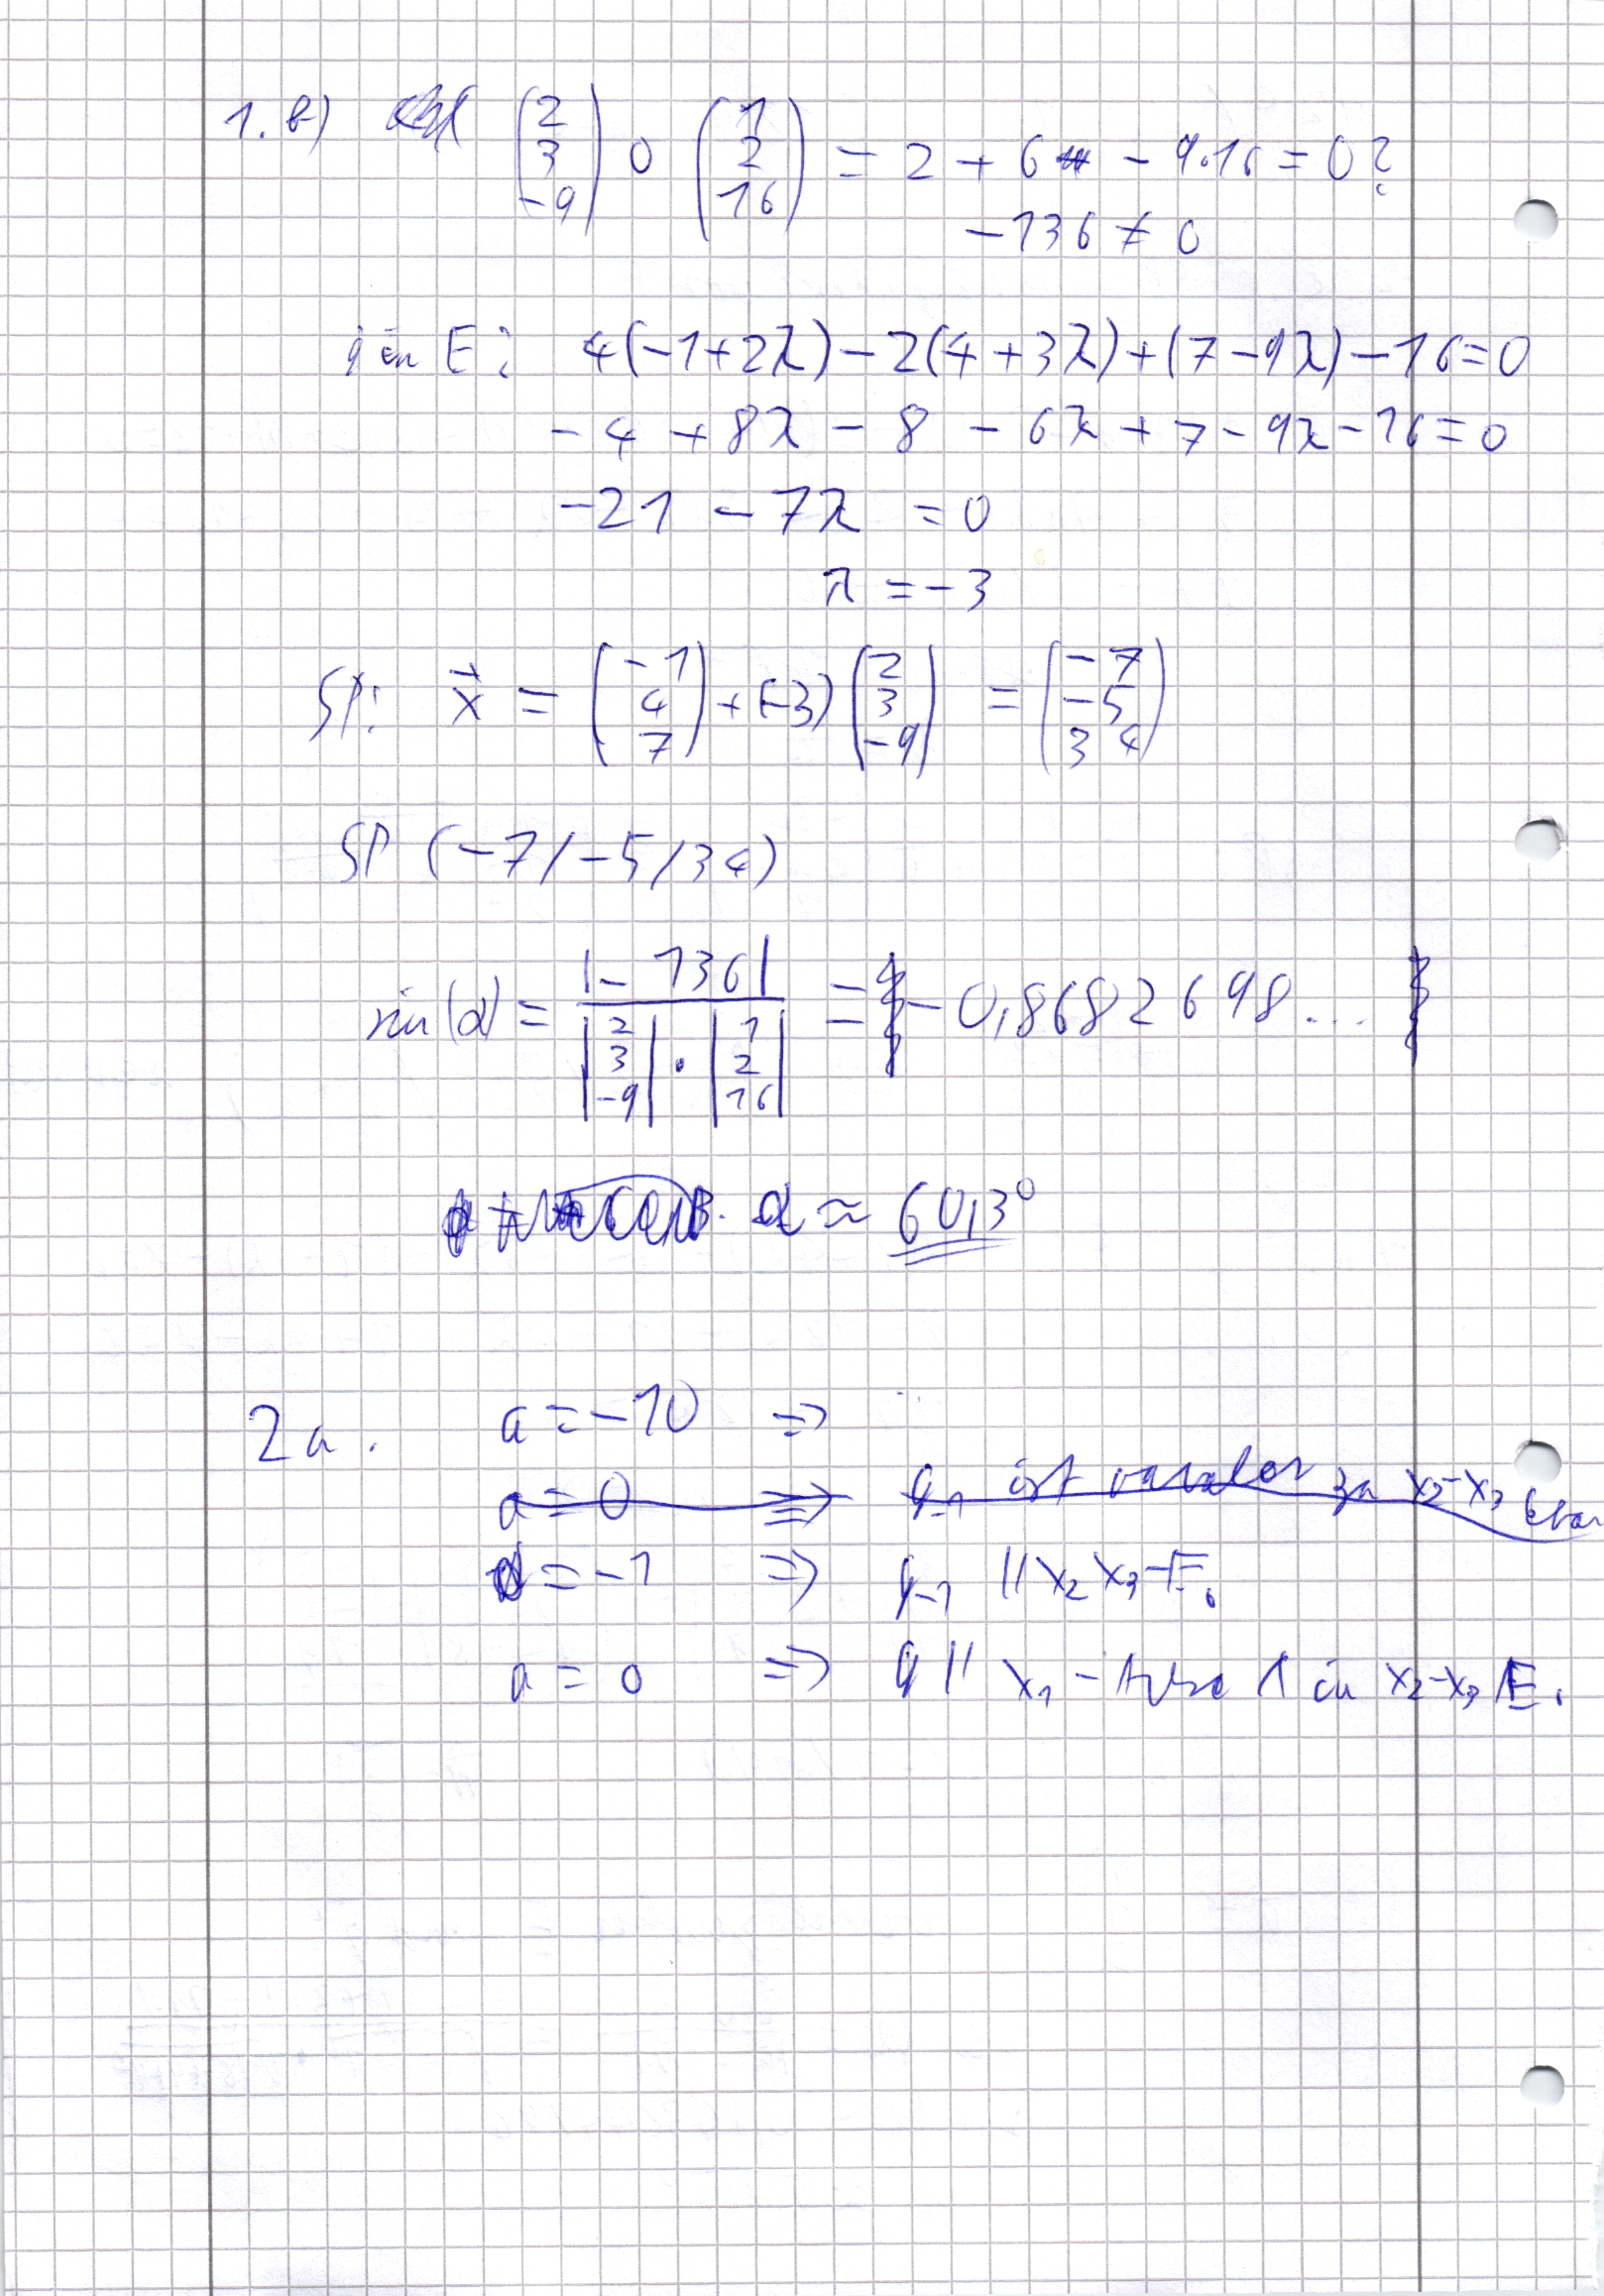 1. b) (2 3 -9) ∘ (1 2 16) = 2 + 6 - 9·16 = 0?
-136 ≠ 0
g in E: 4(-1+2λ) - 2(4+3λ) + (7-9λ) - 16 = 0
-4 + 8λ - 8 - 6λ + 7 - 9λ - 16 = 0
-21 - 7λ = 0
λ = -3
SP: x⃗ = (-1 4 7) + (-3) (2 3 -9) = (-7 -5 34)
SP (-7/-5/34)
sin(α) = |-136| / (|2 3 -9| · |1 2 16|) = -0,8682698...
α ≈ 60,3°
2a. a = -10 ⇒
a = 0 ⇒ g-1 ist parallel zu x2-x3 Eben
= -1 ⇒ g-1 || x2 x3-E.
a = 0 ⇒ g || x1 - Achse ∧ in x2-x3 E.